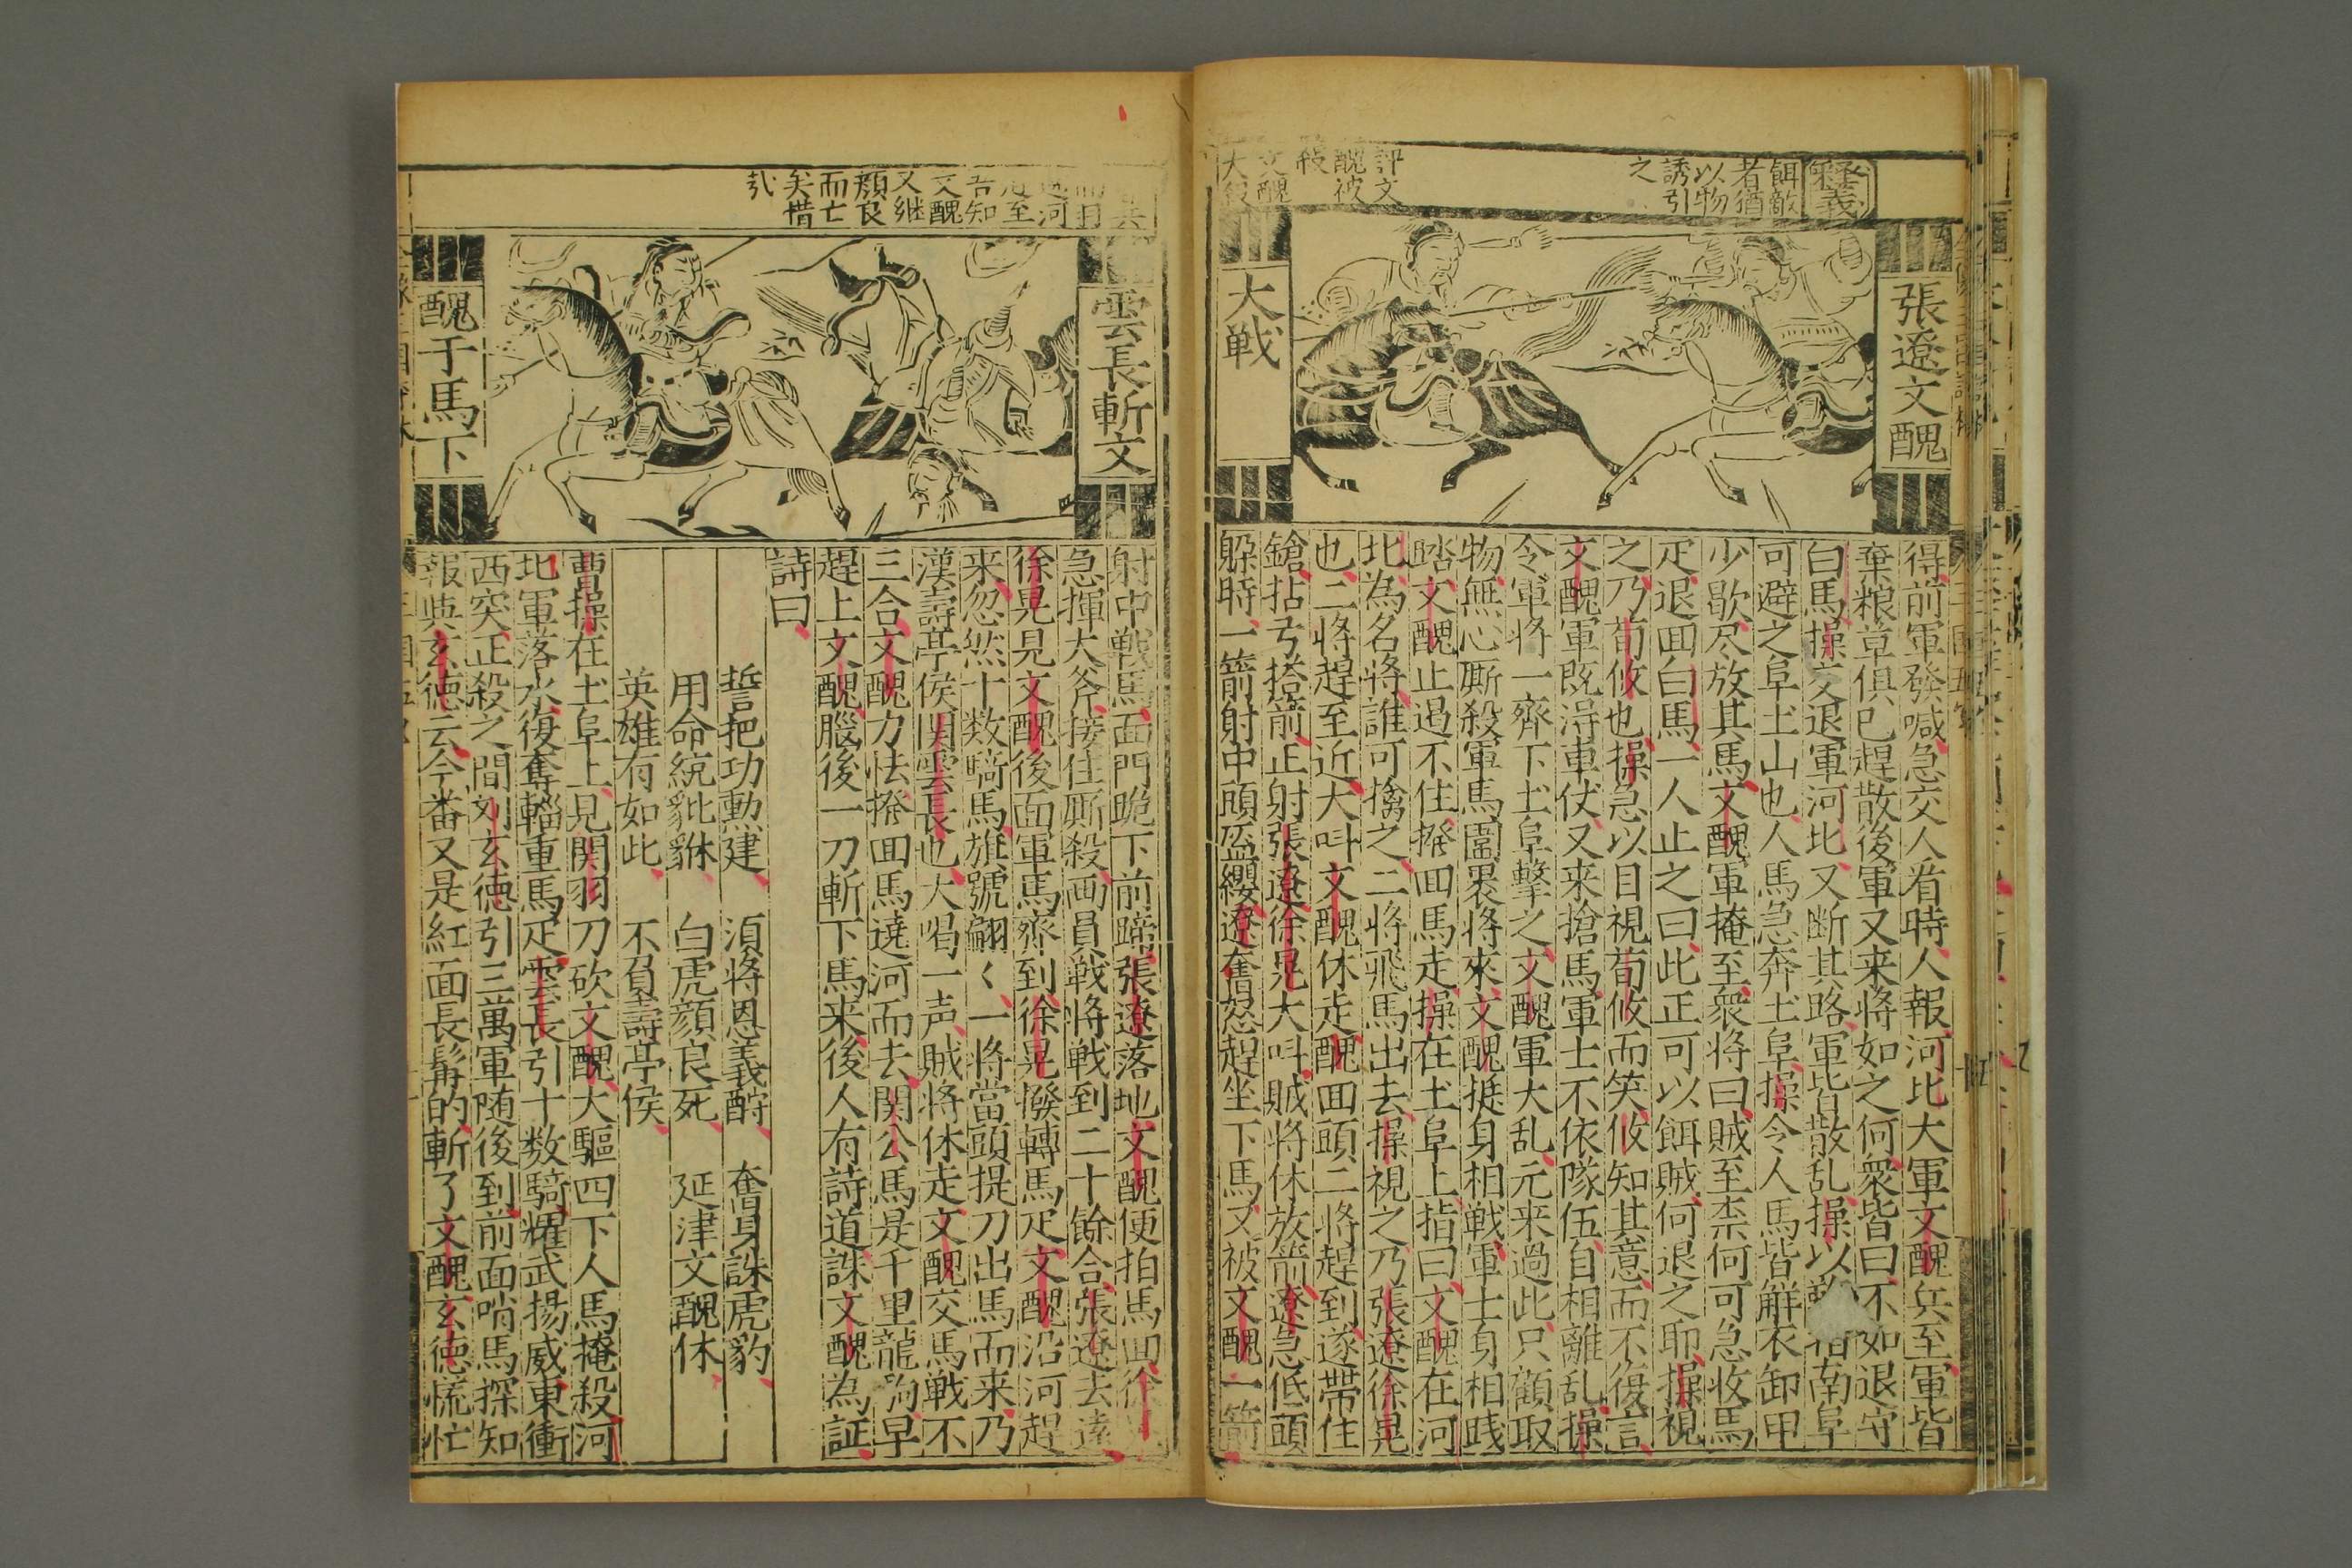 釋義
餌敵
者猶
以物
誘引
之
評文
醜被
殺
文醜
大叙
張遼文醜
大戰
得前軍發喊急交人看時人報河北大軍文醜兵至軍皆
棄粮草俱已趕散後軍又来將如之何衆皆曰不如退守
白馬操交退軍河北又断其路軍皆散乱操以 指南阜
可避之阜土山也人馬急奔土阜操令人馬皆解衣卸甲
少歇尽放其馬文醜軍掩至衆將曰賊至柰何可急收馬
疋退囬白馬一人止之曰此正可以餌賊何退之耶操視
之乃荀攸也操急以目視荀攸而笑攸知其意而不復言
文醜軍既淂車仗又来搶馬軍士不依隊伍自相離乱操
令軍將一齊下土阜擊之文醜軍大乱元来過此只顧取
物無心厮殺軍馬圍裹將來文醜挺身相戰軍士身相践
踏文醜止遏不住撥囬馬走操在土阜上指曰文醜在河
北為名將誰可擒之二將飛馬出去操視之乃張遼徐晃
也二將趕至近大叫文醜休走醜囬頭二將趕到遂帶住
鎗拈弓搭箭正射張遼徐晃大叫賊將休放箭遼急低頭
躲時一箭射中頭盔纓遼奮怒趕坐下馬又被文醜一箭
過河
危至
吾知
文醜
又継
顏良
而亡
矣惜
哉
雲長斬文
醜于馬下
射中戰馬面門跪下前蹄張遼落地文醜便拍馬囬徐
急揮大斧接住厮殺両員戰將戰到二十餘合張遼去遠
徐晃見文醜後面軍馬齊到徐晃撥轉馬疋文醜沿河趕
来忽然十数騎馬旗號翩〱一將當頭提刀出馬而来乃
漢壽亭侯関雲長也大喝一声賊將休走文醜交馬戰不
三合文醜力怯撥囬馬遶河而去関公馬是千里龍駒早
趕上文醜腦後一刀斬下馬来後人有詩道誅文醜為証
詩曰
誓把功勳建　須將恩義酹　奮身誅虎豹
用命統貔貅　白虎顏良死　延津文醜休
英雄有如此　不負壽亭侯
曹操在土阜上見関羽刀砍文醜大驅四下人馬掩殺河
北軍落水復奪輜重馬疋雲長引十数騎耀武揚威東衝
西突正殺之間刘玄徳引三萬軍随後到前面哨馬探知
報與玄徳云今番又是紅面長髯的斬了文醜玄徳慌忙